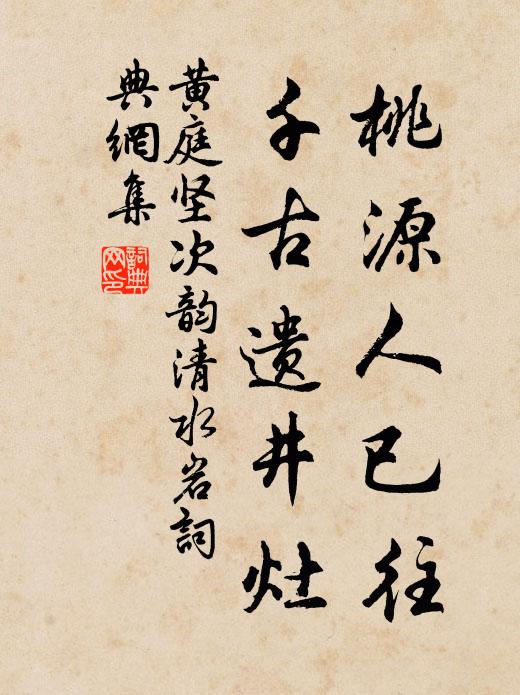 桃源人已往
千古遗井灶
黄庭坚次韵清水岩詞
典網集
詞典
网印